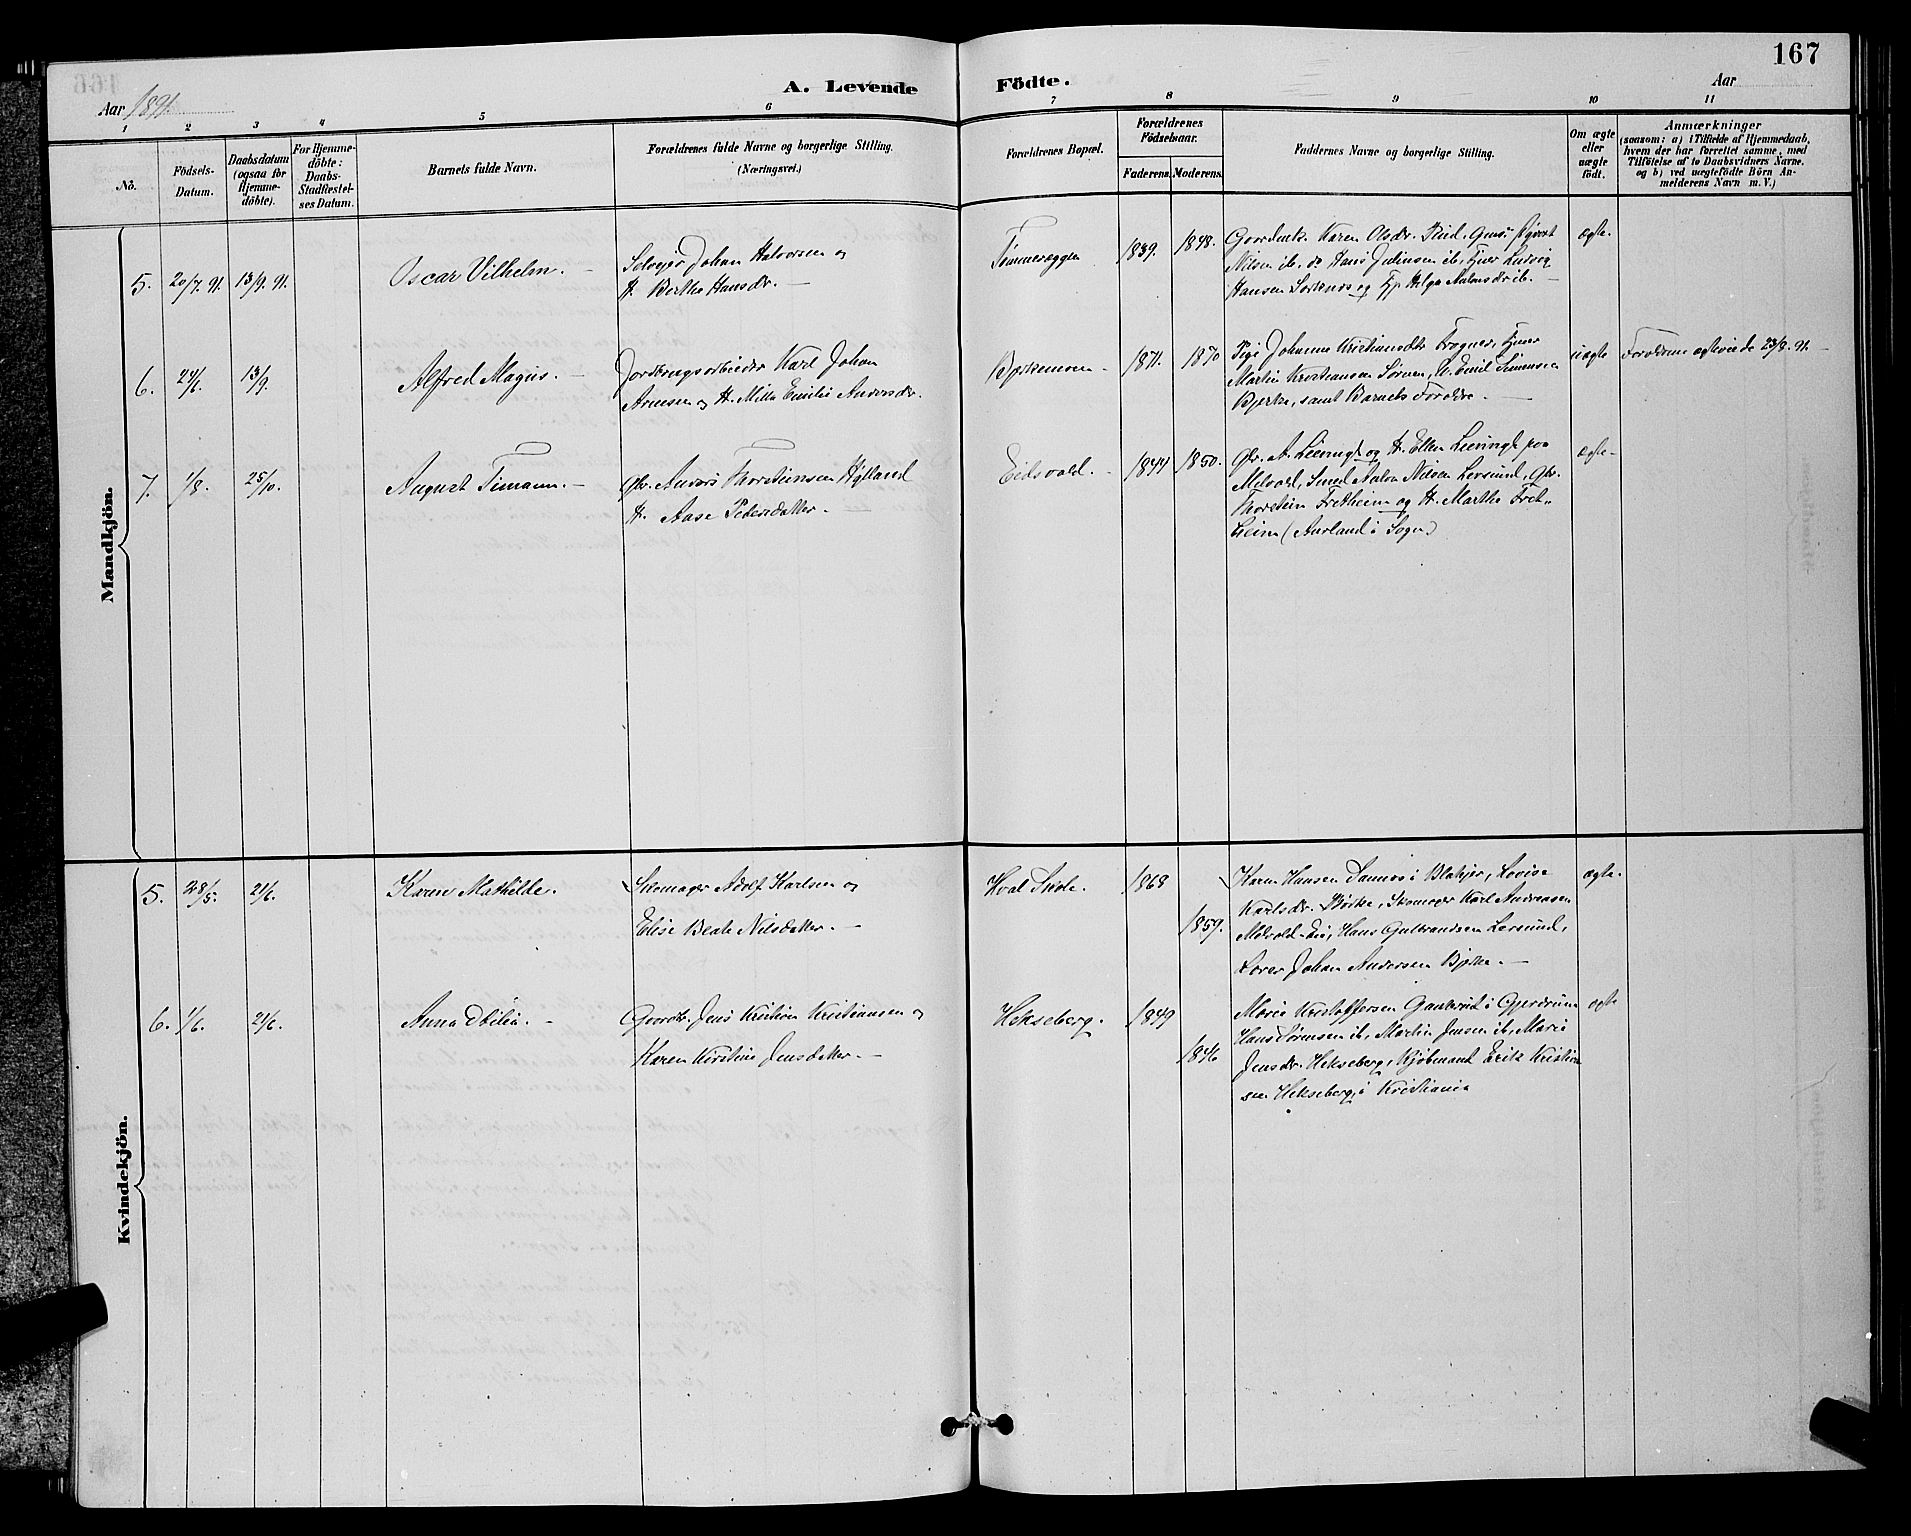 167
A. Levende Födte.
Aar 1891.
Aar
1 2 3 4 5 6 7 8 9 10 11
No.
Födsels-Datum.
Daabsdatum (ogsaa for Hjemmedöbte).
For Hjemmedöbte: Daabs-Stadfæstelses Datum.
Barnets fulde Navn.
Forældrenes fulde Navne og borgerlige Stilling.
(Næringsvei.)
Forældrenes Bopæl.
Forældrenes Födselsaar.
Faderens. Moderens.
Faddernes Navne og borgerlige Stilling.
Om ægte eller uægte födt.
Anmærkninger
(saasom: a) i Tilfælde af Hjemmedaab, hvem der har forrettet samme, med Tilföielse af to Daabsvidners Navne. og b) ved uægtefödte Börn Anmelderens Navn m. V.)
Mandkjön.
5. 20/7. 91. 13/9. 91. Oscar Vilhelm. –
Selveier Johan Halvorsen og
H. Berthe Hansdr. –
1839. 1848.
Gaardenk. Karen Olsdr. Rud, Gms. Sigvart
Nilsen ib. do Hans Juliusen ib, Tjner Ludvig
Hansen Sørknes og Tjp Helga Antonsdr ib. –
ægte.
6. 24/6. 13/9 Alfred Magus. –
Jordbrugsarbeider Karl Johan
Arnesen og H. Milla Emilie Andersdr.
Bjerkemoen – 1871. 1870
Pige Johanne Kristiansdtr Frogner, Tjner
Martin Kristiansen Sørum, U. Emil Simensen
Bjerke, samt Barnets Forældre. –
uægte
Forældrene ægteviede 23/8. 91. –
7. 1/8. 25/10. August Timann. –
Gbr. Anders Thorsteinsen Hylland
H. Aase Pedersdatter. –
Eidsvold. – 1844 1850.
Gbr. A. Lieungh og H. Ellen Lieungh paa
Melvold, Smed Anton Nilsen Lersund, Gbr.
Thorstein Fretheim og H. Martha Fret-
heim (Aurland i Sogn)
ægte –
Kvindekjön.
5. 28/5. 21/6. Karen Mathilde.
Skomager Adolf Karlsen og
Elise Beate Nilsdatter. –
Hval Skole. 1868
1859.
Karen Hansen Sannes i Blakjer, Lovise
Karlsdr. Bjerke, Skomager Karl Andreasen
Melvold-Eie, Hans Gulbrandsen Lersund,
Lærer Johan Andersen Bjerke. –
ægte.
6. 1/6. 21/6. Anna Otilia. –
Gaardbr. Jens Kristian Kristiansen og
Karen Kirstine Jensdatter. –
Hekseberg. 1849
1846
Marie Kristoffersen Gankerud i Gjerdrum
Hans Sørensen ib, Martin Jensen ib, Marie
Jensdr. Hekseberg, Kjøbmand Erik Kristian
sen Hekseberg, i Kristiania
ægte